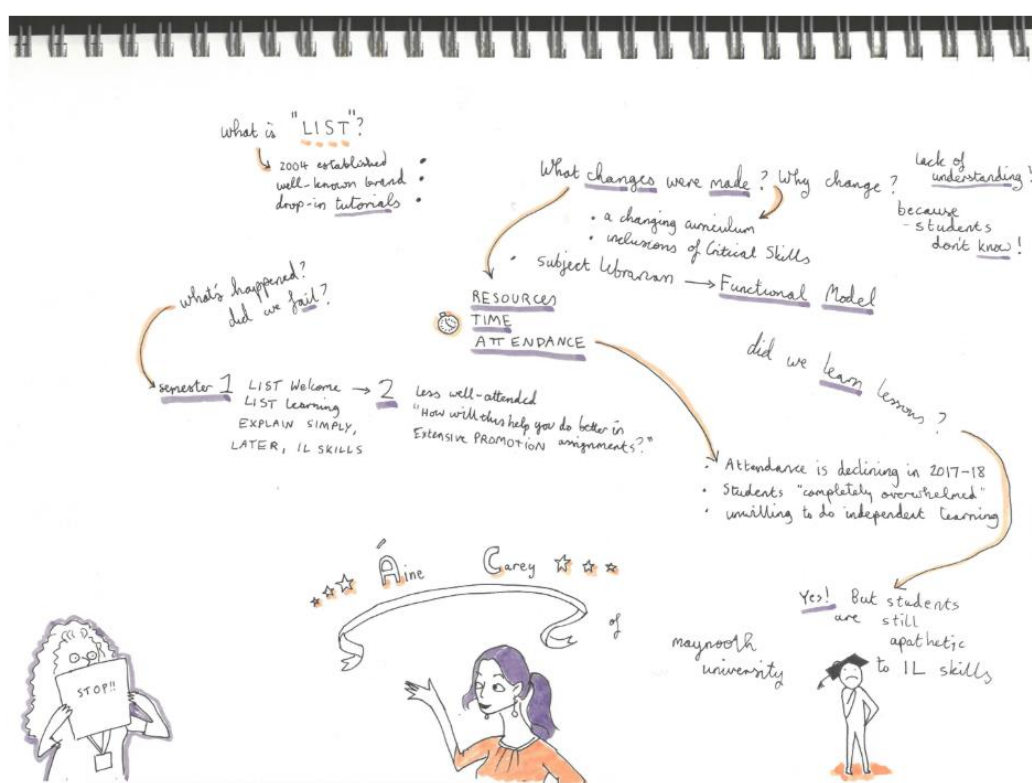 What is "LIST"?
2004 established •
well-known brand •
drop-in tutorials •
What changes were made? Why change?
lack of
understanding!
because
- students
don't know!
• a changing curriculum
• inclusions of Critical Skills
• subject librarian → Functional Model
RESOURCES
TIME
ATTENDANCE
what's happened?
did we fail?
semester 1
LIST Welcome → 2
LIST Learning
EXPLAIN SIMPLY,
LATER, IL SKILLS
Less well-attended
"How will this help you do better in
Extensive PROMOTION assignments?"
did we learn lessons?
• Attendance is declining in 2017-18
• Students "completely overwhelmed"
• unwilling to do independent learning
Yes! But students
are still
apathetic
to IL skills
Áine Carey
of
maynooth
university
STOP!!